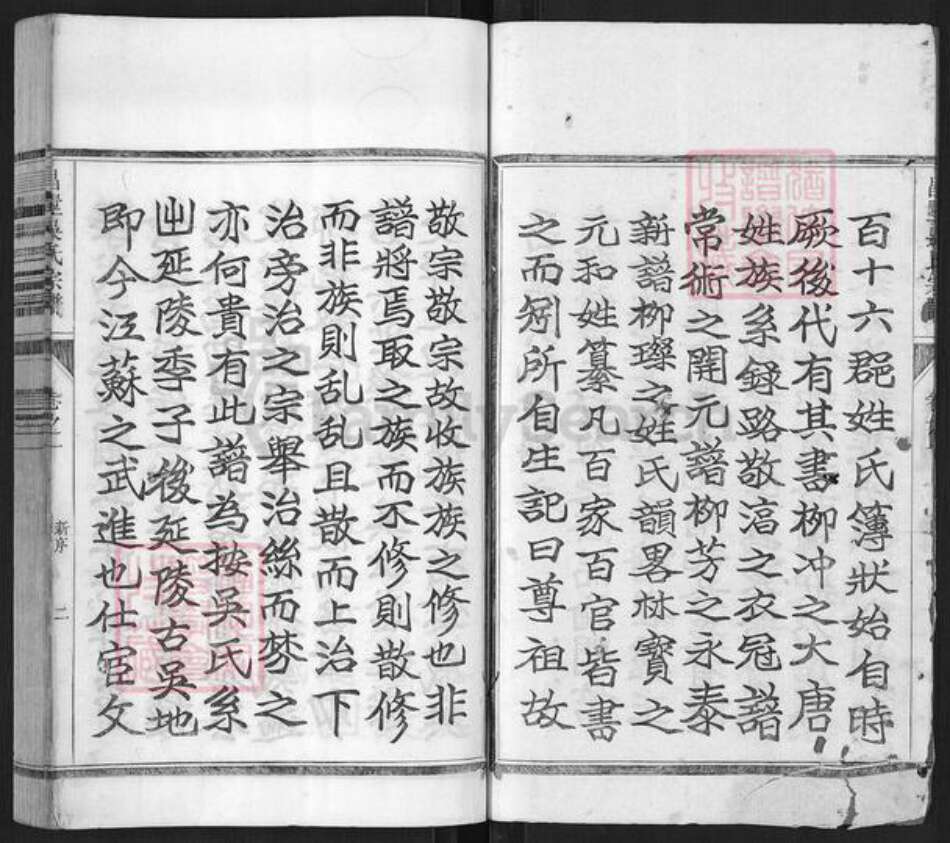 百十六郡姓氏簿狀始自時
厥後代有其書柳冲之大唐
姓族系録路敬淳之衣冠譜
常術之開元譜柳芳之永泰
新譜柳璨之姓氏韻畧林寶之
元和姓纂凡百家百官皆書
之而夘所自生記曰尊祖故
敬宗敬宗故收族族之修也非
譜將焉取之族而不修則散修
而非族則乱乱且散而上治下
治旁治之宗舉治絲而棼之
亦何貴有此譜為按吳氏系
出延陵季子後延陵古吳地
即今江蘇之武進也仕宦文
吳氏宗譜
卷之一
新序
二
FamilySearch